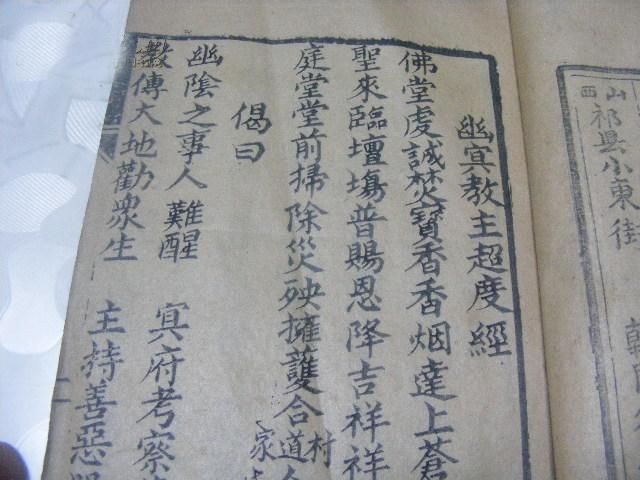 山西
祁县小東街
幽冥教主超度經
佛堂虔誠焚寶香香烟達上蒼
聖來臨壇塲普賜恩降吉祥祥
庭堂堂前掃除災殃擁護合
村道家
偈曰
幽陰之事人難醒 冥府考察
傳大地勸衆生 主持善惡